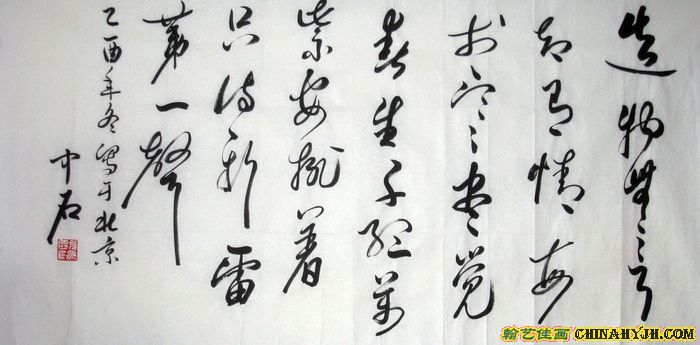 造物無言
却有情每
於寒尽觉
春生千红萬
紫安排着
只待新雷
第一聲
乙酉年冬写于北京
中石
翰艺佳画 CHINAHYJH.COM